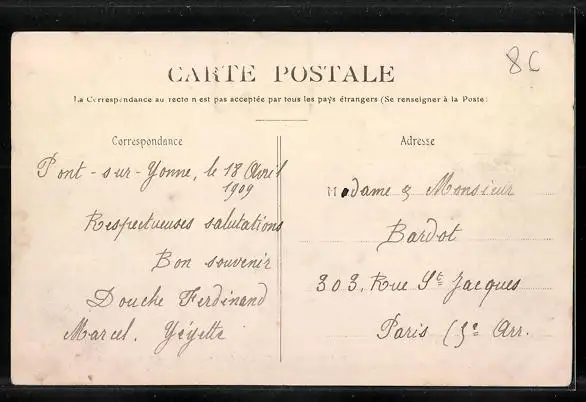 8C
CARTE POSTALE
La Correspondance au recto n est pas acceptée par tous les pays étrangers (Se renseigner à la Poste)
Correspondance
Pont-sur-Yonne, le 18 Avril
1909
Respectueuses salutations
Bon souvenir
Douche Ferdinand
Marcel. Yéyette
Adresse
Madame & Monsieur
Bardot
303, Rue St Jacques
Paris (5e Arr.